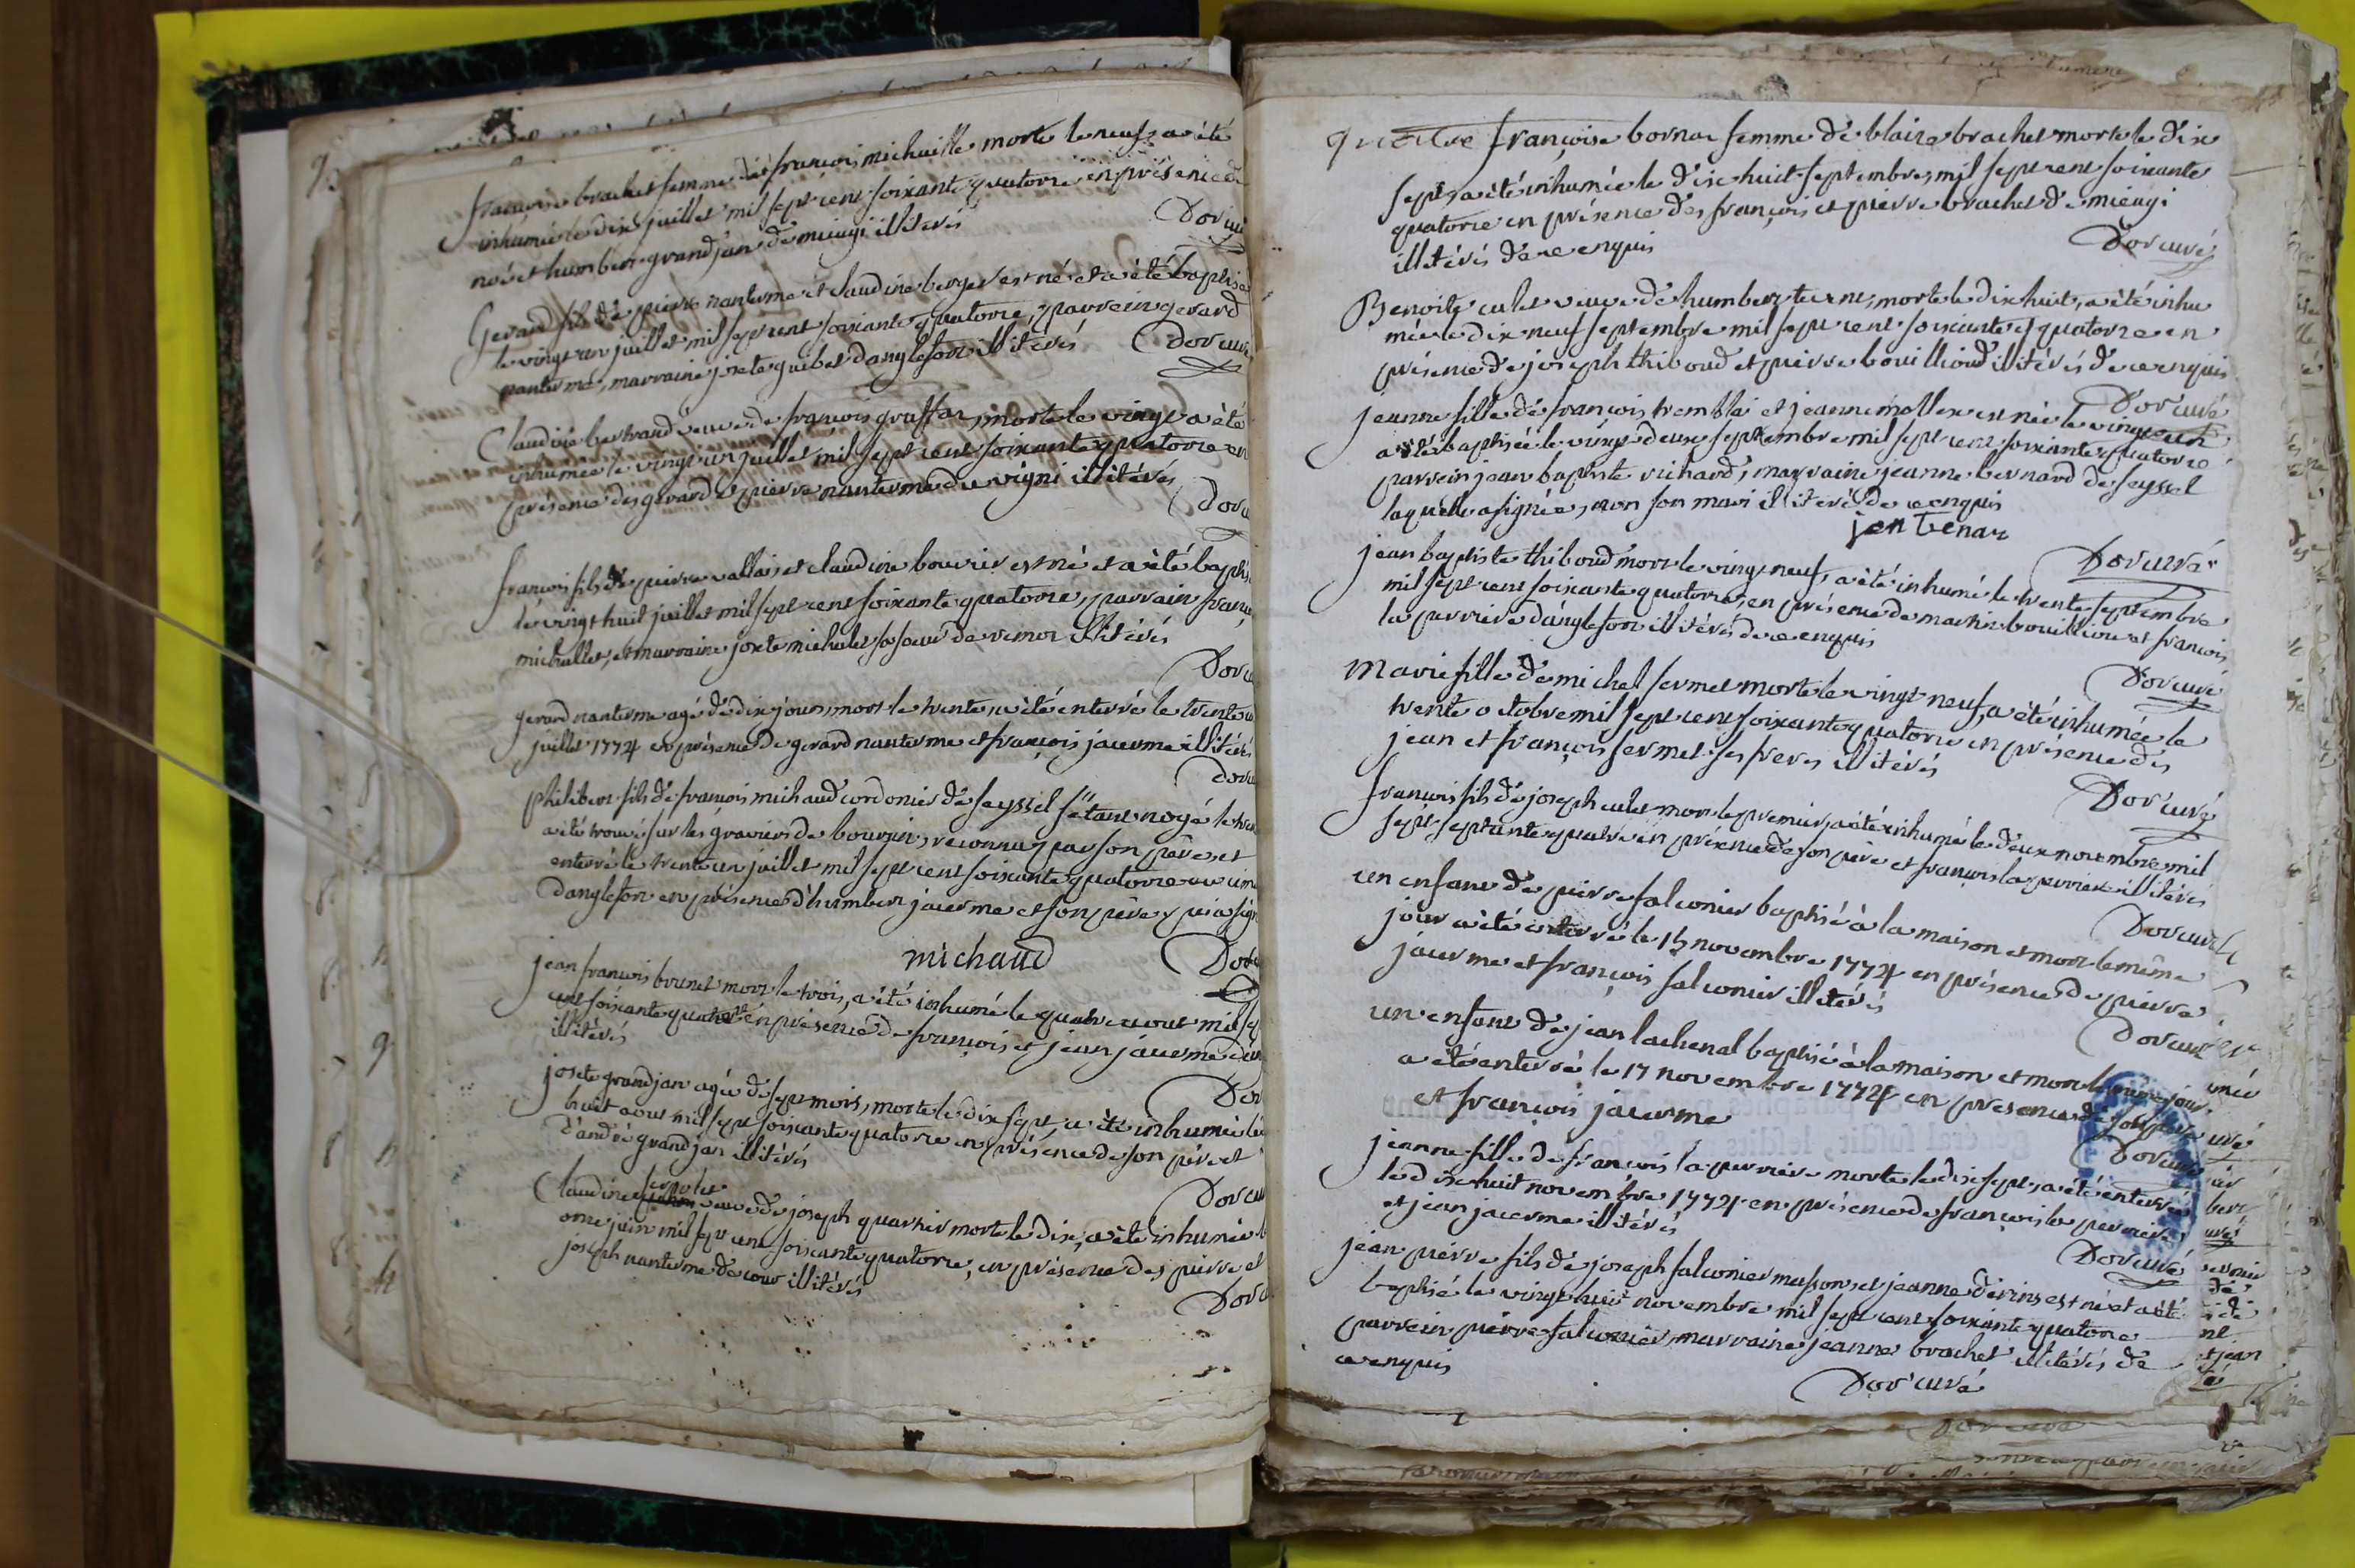 françoise brachet femme de françois michaille morte le neuf, a été
inhumée le dix juillet mil sept cent soixante quatorze en présence de
noé et humbert grandjan de mieugi illitérés
Dor curé
Gerard fils de pierre nanterme et claudine berger est né et a été baptisé
le vingt un juillet mil sept cent soixante quatorze, parrein gerard
nanterme, marraine josete guibet danglefort illitérés Dor curé
Claudine bertrand veuve de françois graffar, morte le vingt a été
inhumée le vingt un juillet mil sept cent soixante quatorze en
présence des gerard et pierre nanterme illitérés
Dor cu
françois fils de pierre vallais et claudine bouvier est né et a été baptis
le vingt huit juillet mil sept cent soixante quatorze, parrain franç
michallet, et marraine josete michalet sa soeur illitérés
Dor cu
gerard nanterme agé de dix jours mort le trente a été enterré le trente u
juillet 1774 en présence de gerard nanterme et françois jacerme illitérés
Dor cu
philibert fils de françois michaud cordonier de seyssel s'étant noyé le
a été trouvé sur les graviers de reconnu par son père, et
enterré le trente un juillet mil sept cent soixante quatorze au cim
danglefort en présence d'humbert jacerme et son père qui a sign
michaud Dor
jean françois brunet mort le trois, a été inhumé le quatre aout mil sep
cent soixante quatorze en présence de françois et jean jacerme
illitérés
Dor
josete grandjan agée de sept mois, morte le dix sept, a été inhumée le
huit aout mil sept soixante quatorze en présence de son père et
d'andré grandjan illitérés
Dor cu
Claudine veuve de joseph quartier morte le dix, a été inhumée l
onze juin mil sept cent soixante quatorze, en présence des pierre et
joseph nanterme de cour illitérés
Dor c
quatre françoise bornar femme de blaize brachet morte le dix
sept, a été inhumée le dix huit septembre mil sept cent soixante
quatorze en présence des françois et pierre brachet de mieugi
illitérés de ce enquis
Dor curé
Benoite culet veuve de humbert morte le dix huit, a été inhu
mée le dix neuf septembre mil sept cent soixante et quatorze en
présence de joseph thiboud et pierre bouillioud illitérés de ce enquis
Dor curé
jeanne fille de françois tremblai et jeanne mollex est née le vingt un
a été baptisée le vingt deux septembre mil sept cent soixante quatorze
parrein jean baptiste richard, marraine jeanne bernard de seyssel
laquelle a signée, non son mari illitéré de ce enquis
jen benar
Dor curé
jean baptiste thiboud mort le vingt neuf, a été inhumé le trente septembre
mil sept cent soixante quatorze, en présence de martin bouilliou et françois
la perriere d'anglefort illitérés de ce enquis
Dor curé
Marie fille de michel fermet morte le vingt neuf, a été inhumée le
trente octobre mil sept cent soixante quatorze en présence des
jean et françois fermet ses freres illitérés
Dor curé
françois fils de joseph culet mort le premier, a été inhumé le deux novembre mil
sept septante quatre en présence de son père et françois la perriere illitérés
Dor curé
un enfant de pierre falconier baptisé à la maison et mort le même
jour a été enterré le 15 novembre 1774 en présence de pierre
jacerme et françois falconier illitérés
Dor curé
un enfant de jean lachenal baptisé à la maison et mort le même jour
a été enterré le 17 novembre 1774 en presence de son père
et françois jacerme
Dor curé
jeanne fille de françois la perriere morte le dix sept, a été enterré
le dix huit novembre 1774 en présence de françois la perriere
et jean jacerme illitérés
Dor curé
jean pierre fils de joseph falconier masson, et jeanne derins est né et a été
baptisé le vingt huit novembre mil sept cent soixante quatorze
parrein pierre falconier, marraine jeanne brachet illitérés de
ce enquis
Dor curé